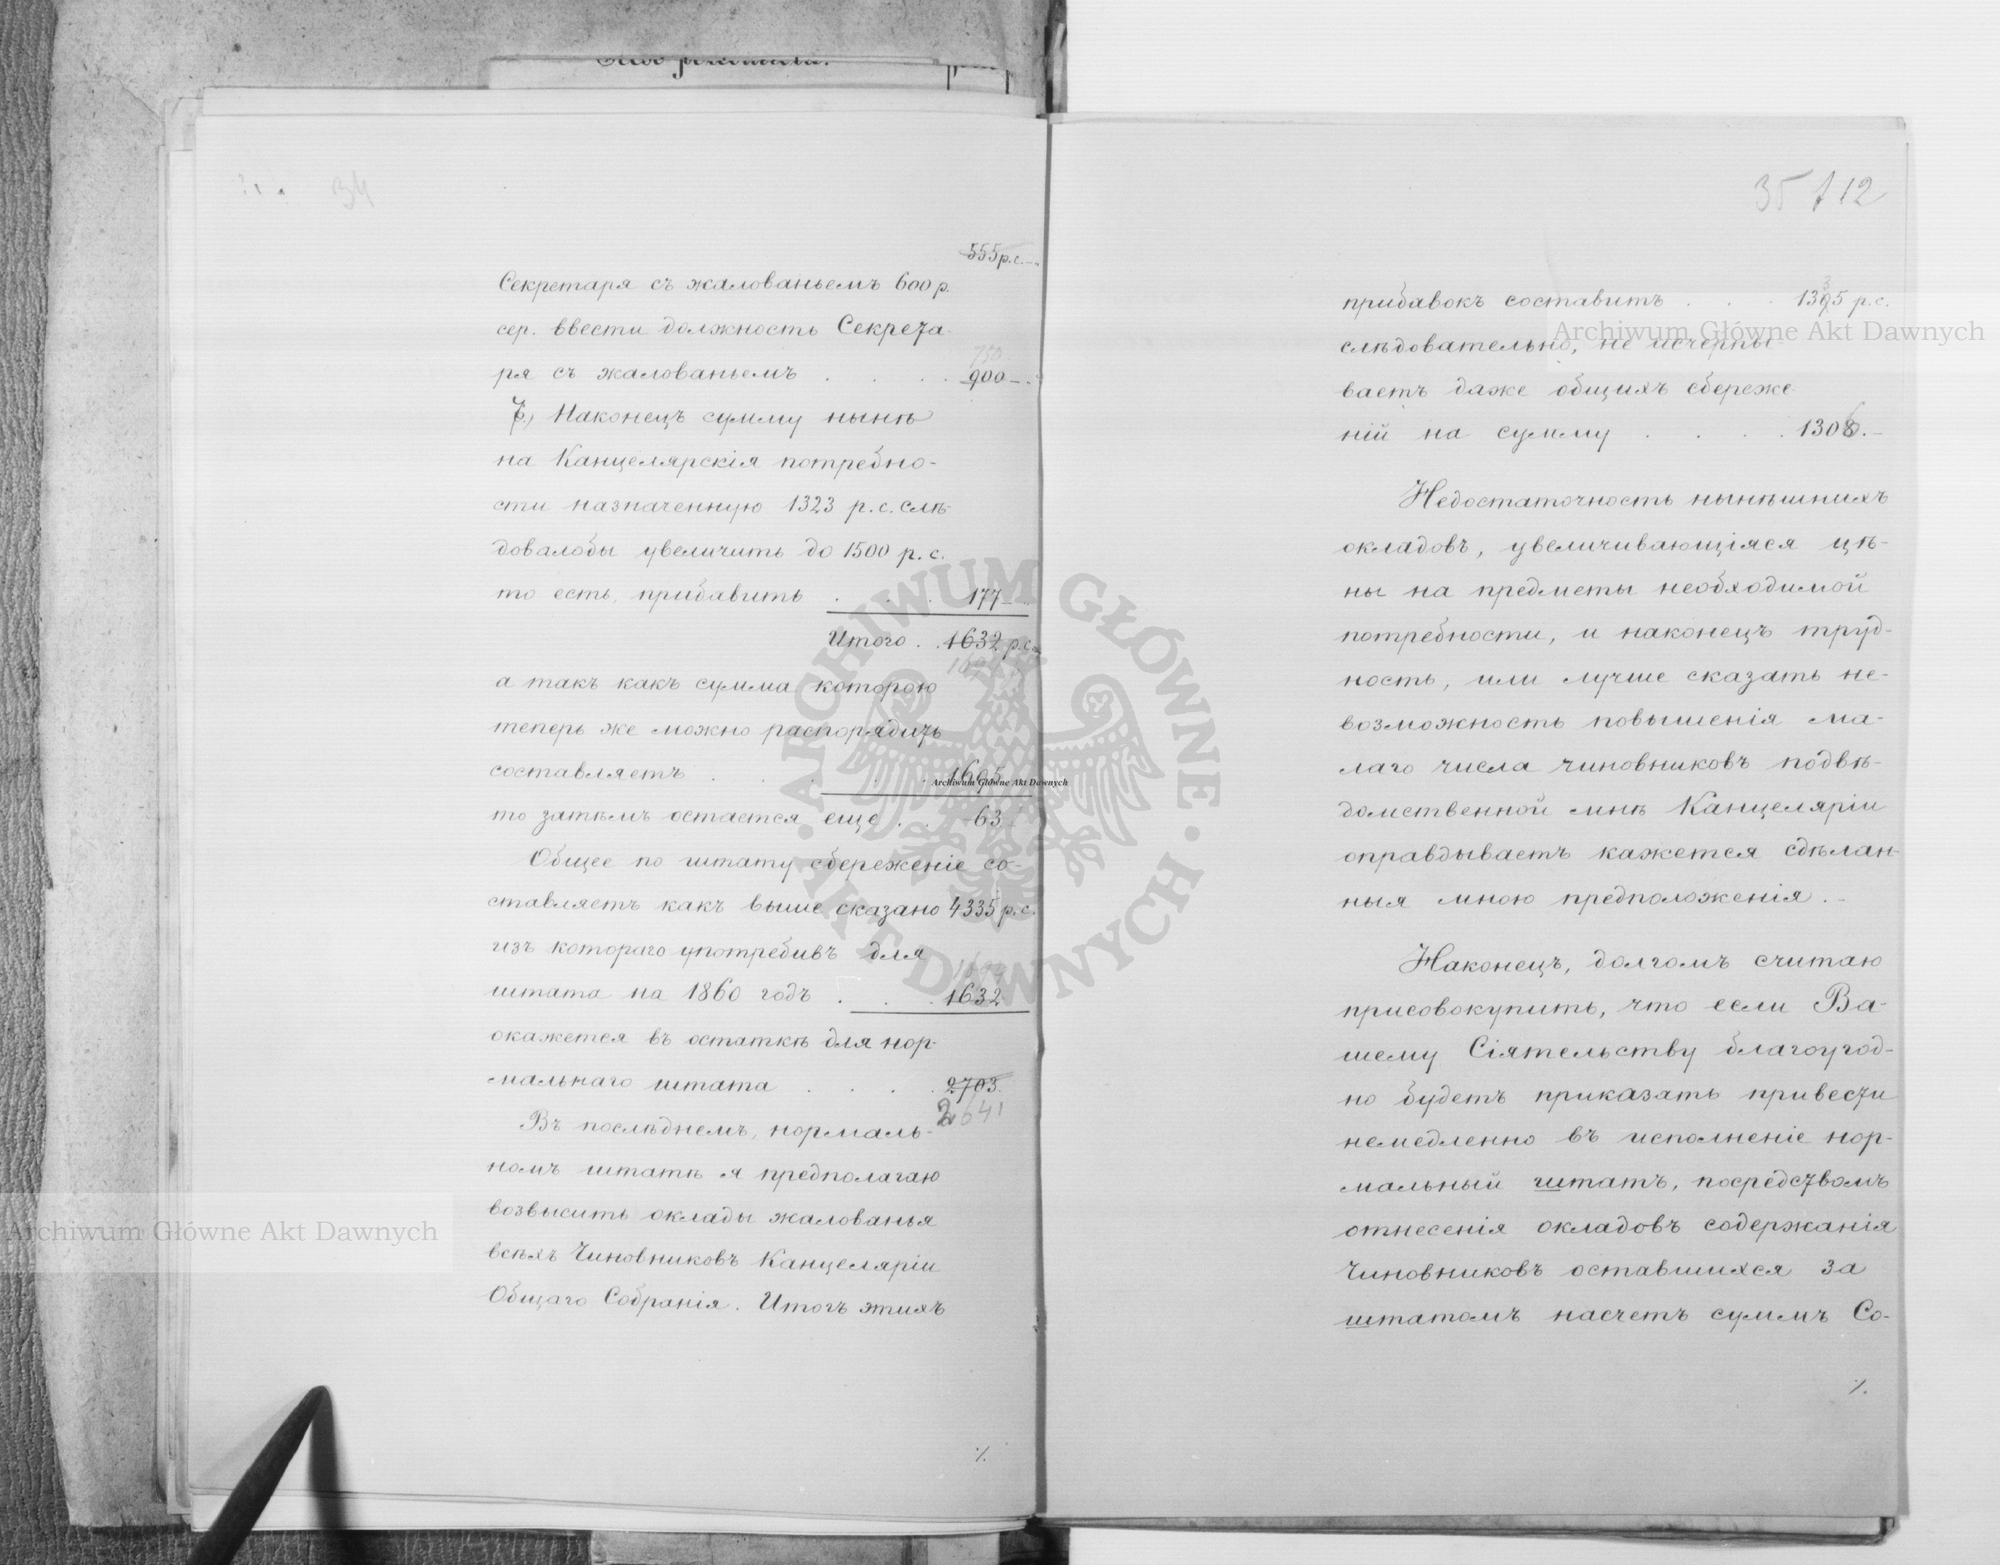 34
555 р.с.
Секретаря съ жалованьемъ 600 р.
сер. ввести должность Секрета-
750
ря съ жалованьемъ . . . . 900 —
7) Наконецъ сумму нынѣ
на Канцелярскія потребно-
сти назначенную 1323 р. с. слѣ-
довалобы увеличить до 1500 р. с.
то есть, прибавить . . . 177 —
Итого . . 1632 р.с.
а такъ какъ сумма которою
теперь же можно распорядить
составляетъ . . . . . 1695
то затѣмъ остается еще . . 63
Общее по штату сбереженіе со-
ставляетъ какъ выше сказано 4335 р.с.
изъ котораго употребивъ для
штата на 1860 годъ . . . 1632
окажется въ остаткѣ для нор-
мальнаго штата . . . . 2703.
2641
Въ послѣднемъ, нормаль-
номъ штатѣ я предполагаю
возвысить оклады жалованья
всѣхъ Чиновниковъ Канцеляріи
Общаго Собранія. Итогъ этихъ
./.
35 112
прибавокъ составитъ . . . 1395 р. с.
слѣдовательно, не исчерпы-
ваетъ даже общихъ сбереже-
ній на сумму . . . . 1306. —
Недостаточность нынѣшнихъ
окладовъ, увеличивающіяся цѣ-
ны на предметы необходимой
потребности, и наконецъ труд-
ность, или лучше сказать не-
возможность повышенія ма-
лаго числа чиновниковъ подвѣ-
домственной мнѣ Канцеляріи
оправдываетъ кажется сдѣлан-
ныя мною предположенія. —
Наконецъ, долгомъ считаю
присовокупить, что если Ва-
шему Сіятельству благоугод-
но будетъ приказать привести
немедленно въ исполненіе нор-
мальный штатъ, посредствомъ
отнесенія окладовъ содержанія
Чиновниковъ оставшихся за
штатомъ насчетъ суммъ Со-
./.
Archiwum Główne Akt Dawnych
Archiwum Główne Akt Dawnych
Archiwum Główne Akt Dawnych
ARCHIWUM GŁÓWNE · AKT DAWNYCH ·